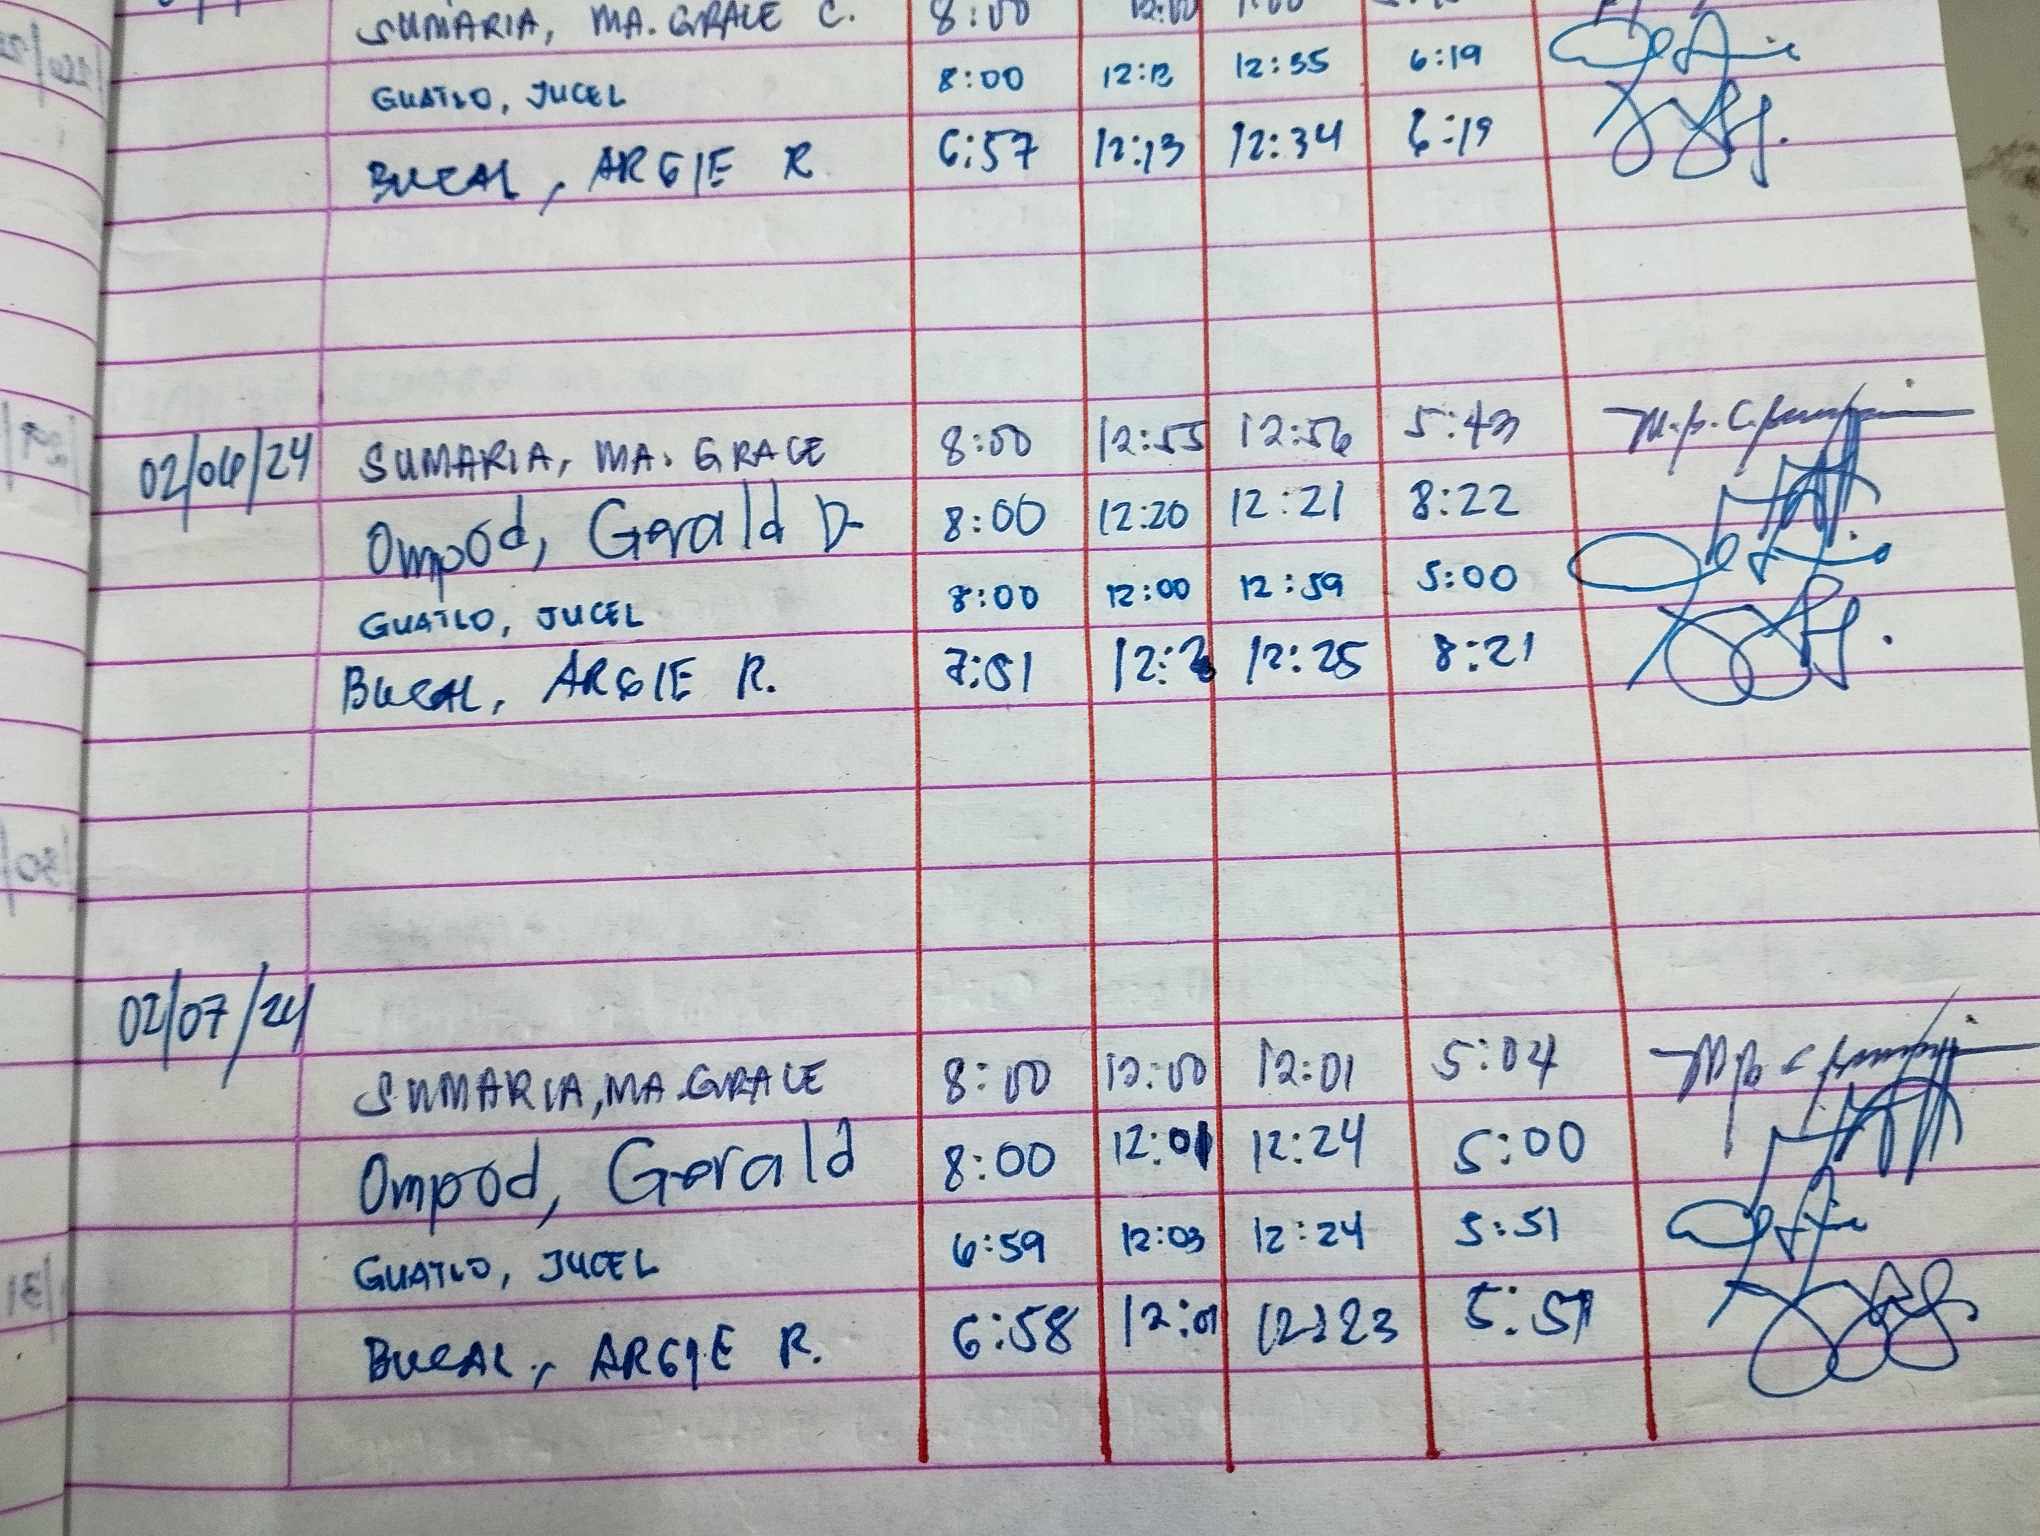 SUMARIA, MA. GRACE C. 8:00 12:00 1:00
GUATLO, JUCEL 8:00 12:13 12:35 6:19
BUCAL, ARGIE R. 6:57 12:13 12:34 6:19
02/06/24 SUMARIA, MA. GRACE 8:00 12:55 12:56 5:43
Ompod, Gerald D. 8:00 12:20 12:21 8:22
GUATLO, JUCEL 8:00 12:00 12:59 5:00
BUCAL, ARGIE R. 7:51 12:25 8:21
02/07/24
SUMARIA, MA. GRACE 8:00 12:00 12:01 5:04
Ompod, Gerald 8:00 12:01 12:24 5:00
GUATLO, JUCEL 6:59 12:03 12:24 5:51
BUCAL, ARGIE R. 6:58 12:01 12:23 5:51